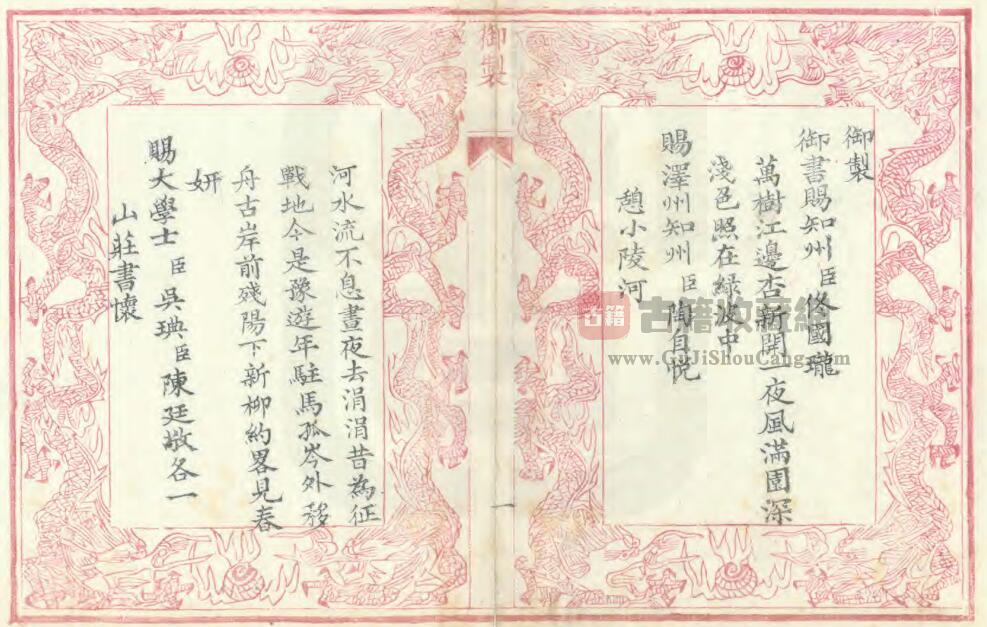 御製
御製
御書賜知州臣佟國瓏
萬樹江邊杏新開一夜風滿園深
淺色照在綠波中
賜澤州知州臣陶自悅
憩小陵河
河水流不息晝夜去涓涓昔為征
戰地今是豫遊年駐馬孤岑外移
舟古岸前殘陽下新柳約畧見春
妍
賜大學士臣吳琠臣陳廷敬各一
山莊書懷
一
古籍
古籍收藏網
www.GuJiShouCang.com